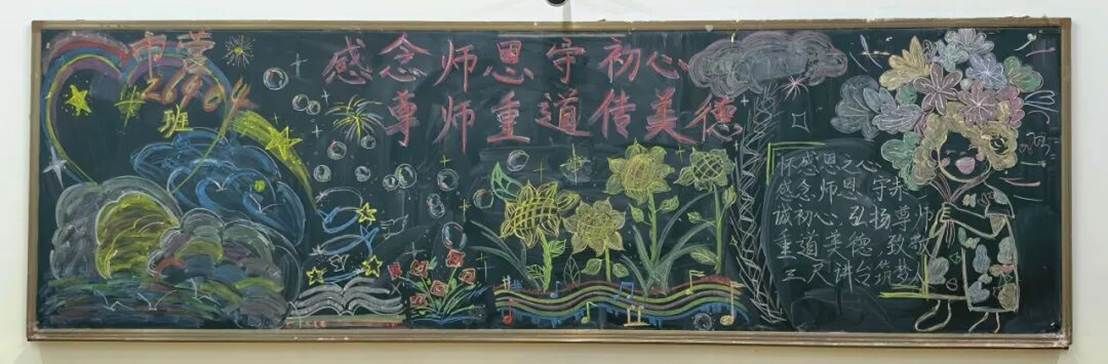 市营
21904
班
感念师恩守初心
尊师重道传美德
怀感恩之心
感念师恩 守赤
诚初心 弘扬尊师
重道美德 致敬
三尺讲台 筑梦人